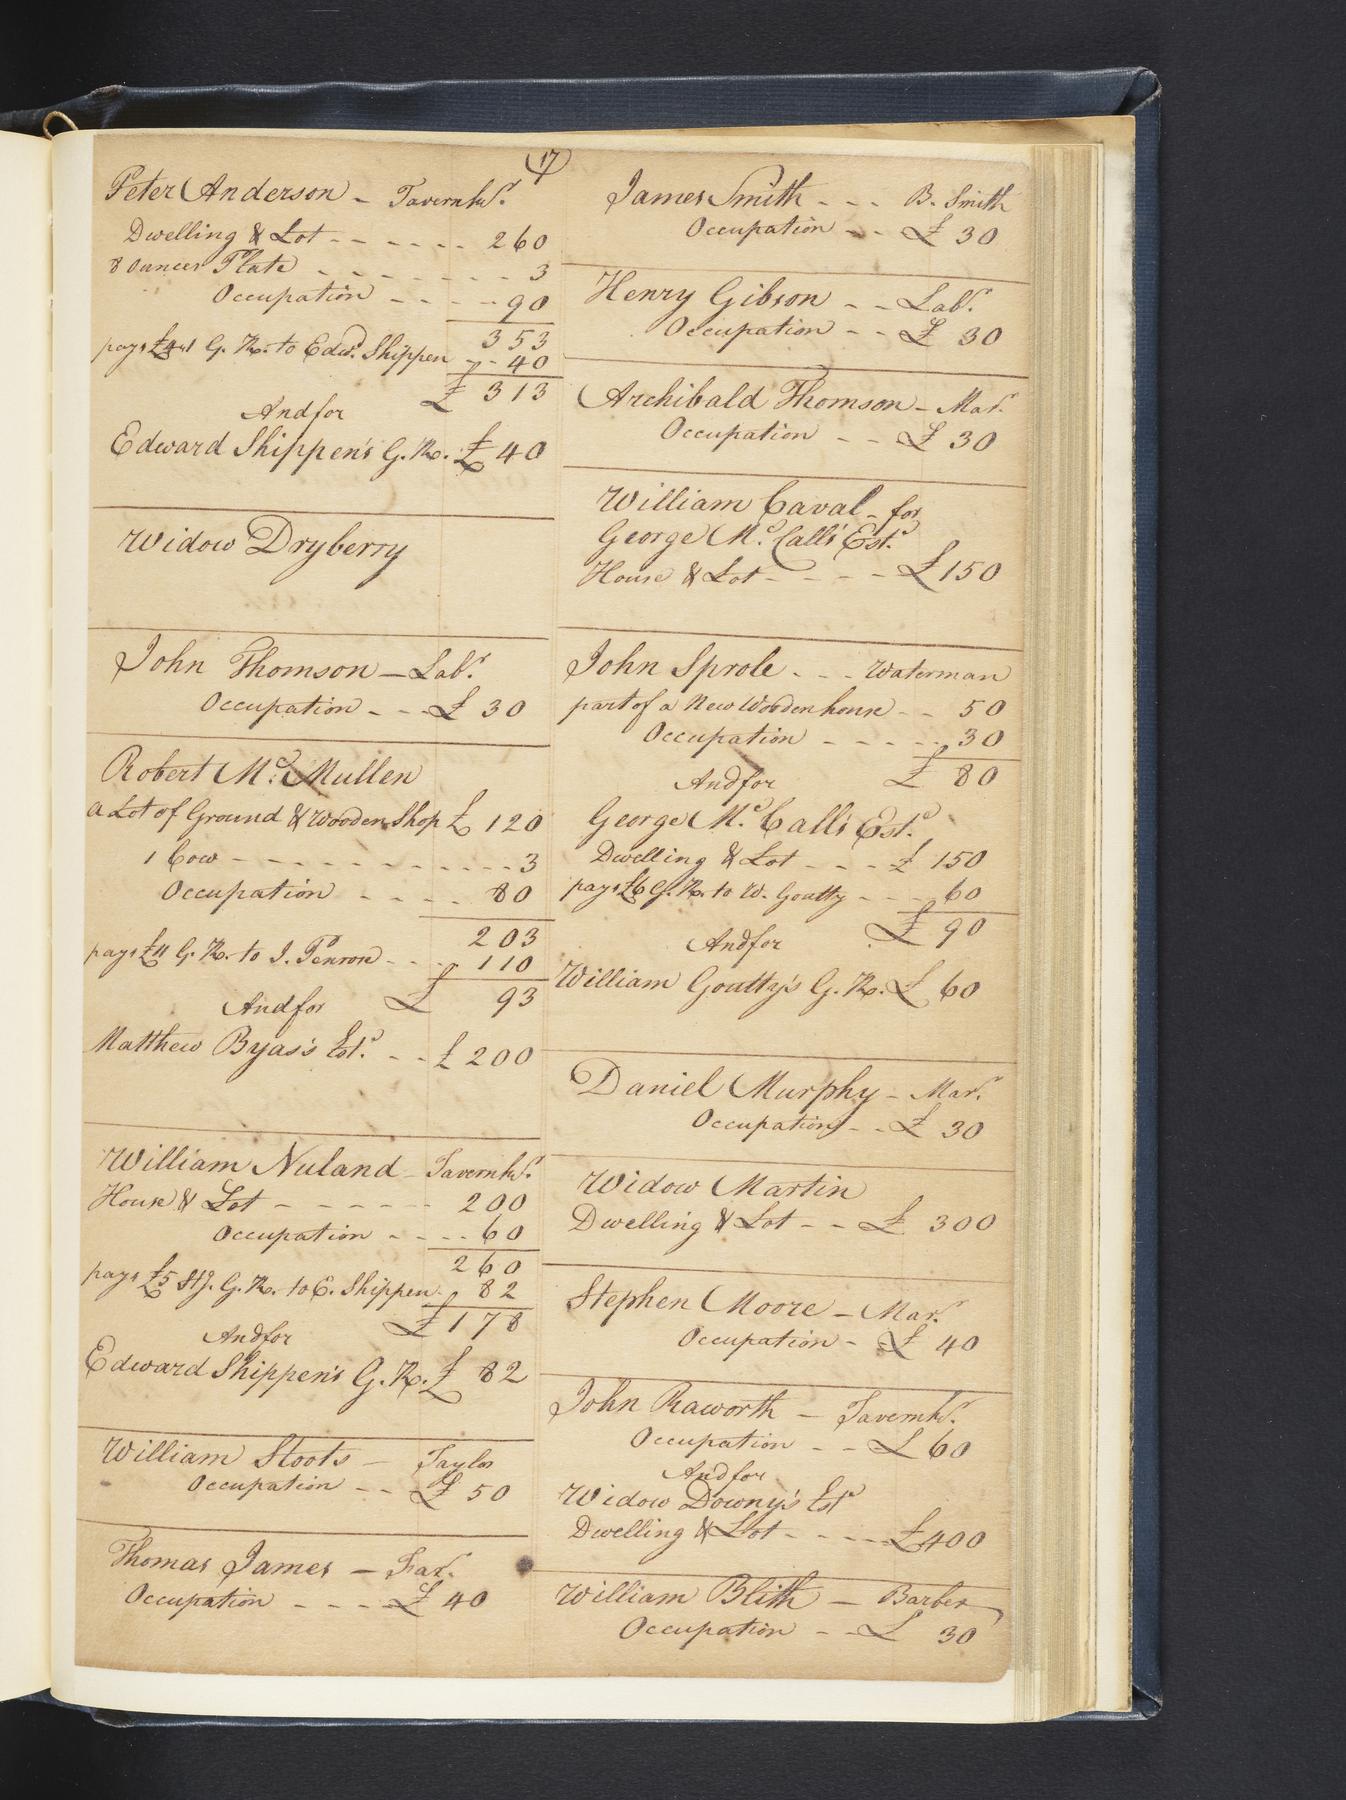 17
Peter Anderson - Tavernkr.
Dwelling & Lot - - - - - - 260
8 Ounces Plate - - - - - - - 3
Occupation - - - - - 90
353
pays £4 G. Rt. to Edwd. Shippen - - 40
£ 313
And for
Edward Shippen's G. Rt. £ 40
Widow Dryberry
John Thomson - Labr.
Occupation - - £ 30
Robert Mc. Mullen
a Lot of Ground & Wooden Shop £ 120
1 Cow - - - - - - - - - - - 3
Occupation - - - - 80
203
pays £11 G. Rt. to J. Penrose - - - 110
£ 93
And for
Matthew Byas's Estd. - - £ 200
William Nuland - Tavernkr.
House & Lot - - - - - - 200
Occupation - - - - 60
260
pays £5 Stg. G. Rt. to E. Shippen - 82
£ 178
And for
Edward Shippen's G. Rt. £ 82
William Stoots - Taylor
Occupation - - £ 50
Thomas James -
Occupation - - - - £ 40
James Smith - - - B. Smith
Occupation - - £ 30
Henry Gibson - - Labr.
Occupation - - £ 30
Archibald Thomson - Mar.
Occupation - - £ 30
William Caval - for
George Mc. Call's Estd.
House & Lot - - - - £ 150
John Sprole - - - Waterman
part of a New Wooden house - - 50
Occupation - - - - - 30
£ 80
And for
George Mc. Call's Estd.
Dwelling & Lot - - - £ 150
pays £6 G. Rt. to W. Goutty - - - 60
£ 90
And for
William Goutty's G. Rt. £ 60
Daniel Murphy - Marr.
Occupation - - £ 30
Widow Martin
Dwelling & Lot - - £ 300
Stephen Moore - Marr.
Occupation - £ 40
John Raworth - Tavernkr.
Occupation - - £ 60
And for
Widow Downy's Estd
Dwelling & Lot - - - - £ 400
William Blith - Barber
Occupation - - £ 30